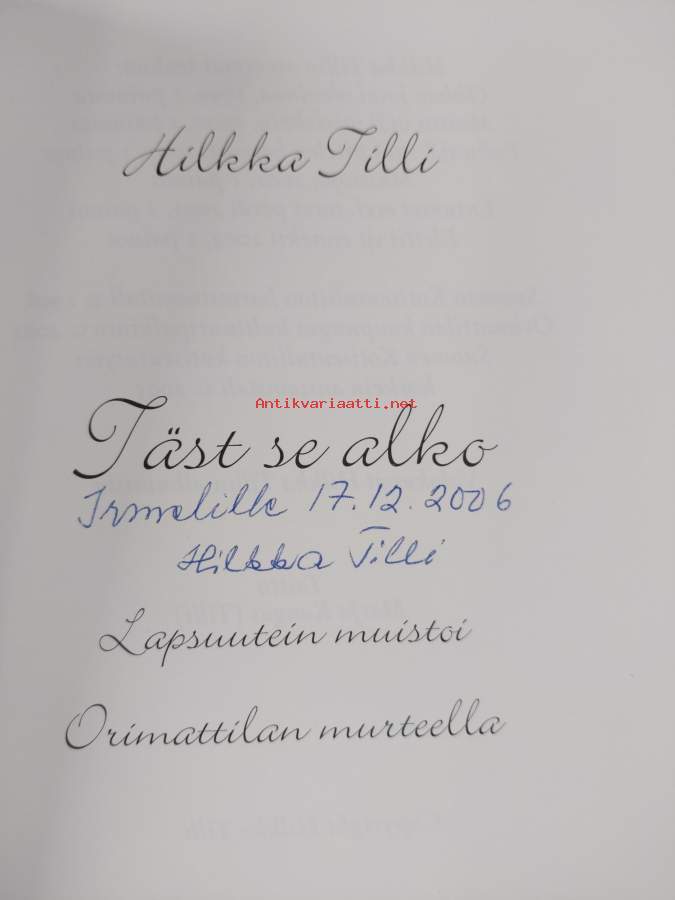 Hilkka Tilli
Antikvariaatti.net
Täst se alko
Irmelille 17.12.2006
Hilkka Tilli
Lapsuutein muistoi
Orimattilan murteella